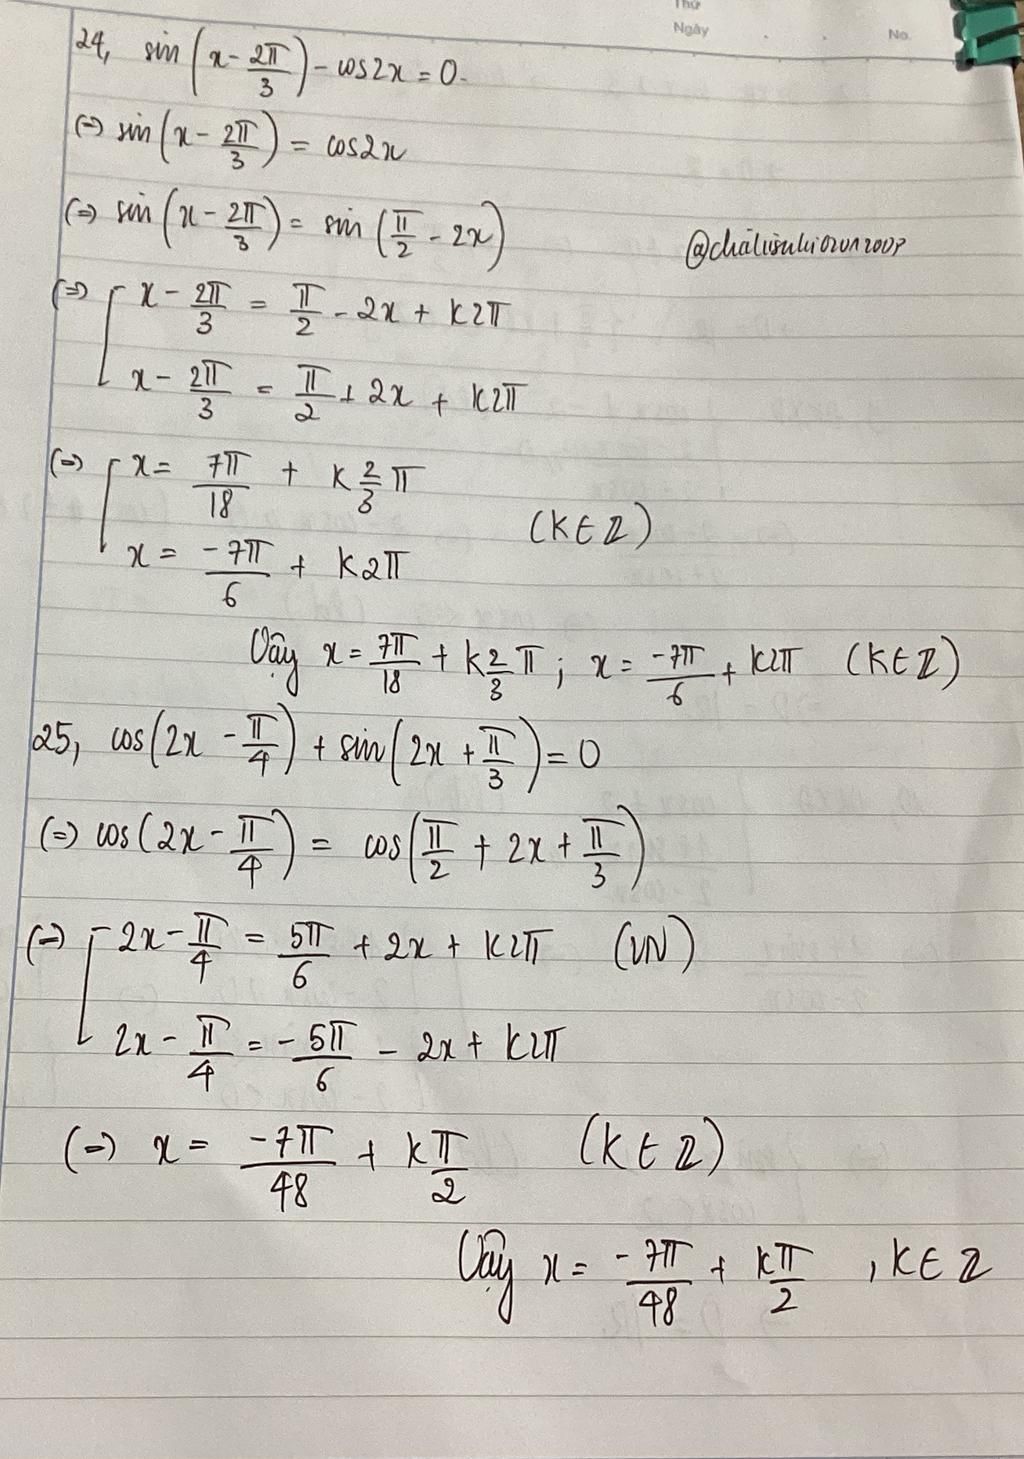 Thứ
Ngày
No.
24, sin(x - 2π/3) - cos2x = 0.
(=) sin(x - 2π/3) = cos2x
(=) sin(x - 2π/3) = sin(π/2 - 2x)
(=) [ x - 2π/3 = π/2 - 2x + k2π
x - 2π/3 = π/2 + 2x + k2π
(=) [ x = 7π/18 + k 2/3 π
x = -7π/6 + k2π (k ∈ Z)
Vậy x = 7π/18 + k 2/3 π ; x = -7π/6 + k2π (k ∈ Z)
25, cos(2x - π/4) + sin(2x + π/3) = 0
(=) cos(2x - π/4) = cos(π/2 + 2x + π/3)
(=) [ 2x - π/4 = 5π/6 + 2x + k2π (VN)
2x - π/4 = - 5π/6 - 2x + k2π
(=) x = -7π/48 + k π/2 (k ∈ Z)
Vậy x = -7π/48 + kπ/2 , k ∈ Z